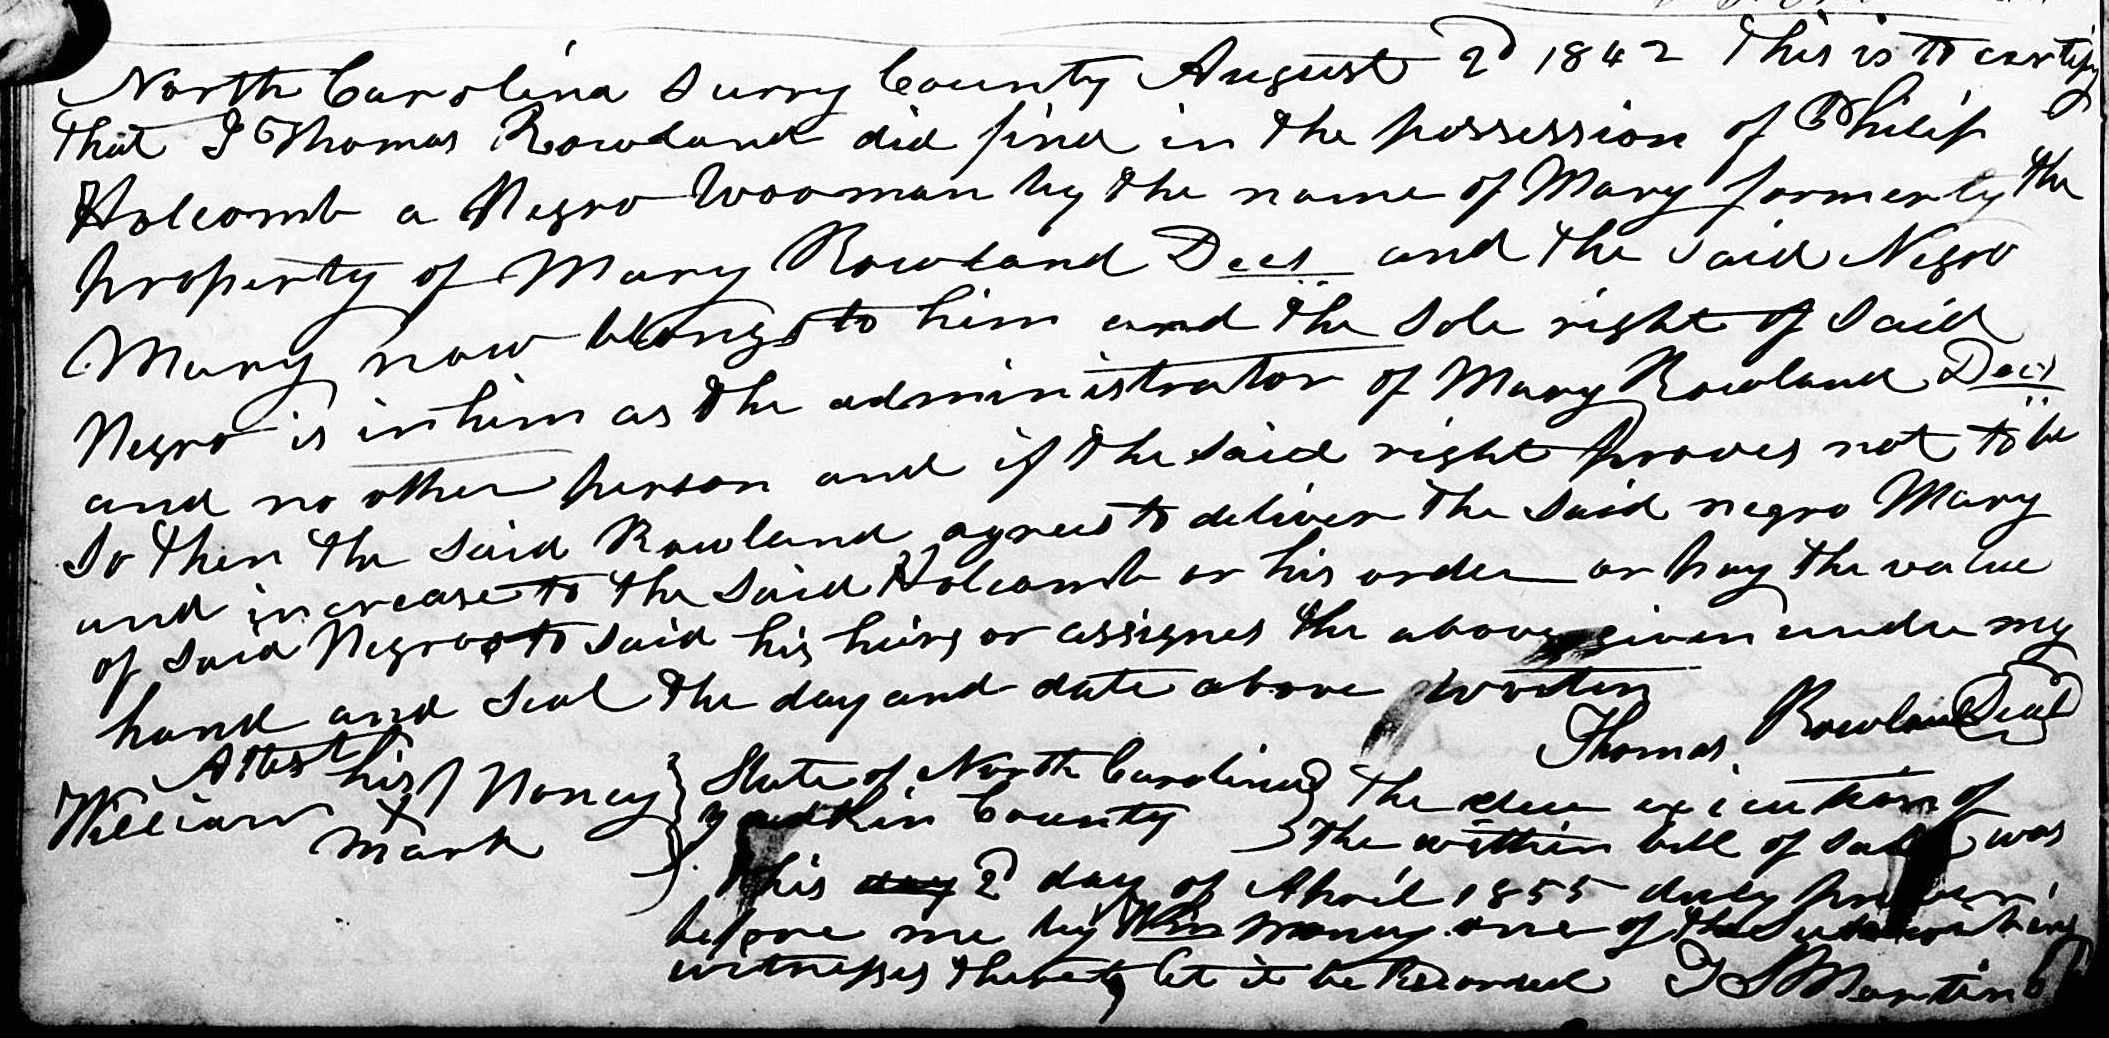 North Carolina Surry County August 2d 1842 This is to certify
that I Thomas Rowland did find in the possession of Philip
Holcomb a Negro Wooman by the name of Mary formerly the
property of Mary Rowland Decd and the said Negro
Mary now belongs to him and the sole right of said
Negro is in him as the administrator of Mary Rowland Decd
and no other person and if the said right proves not to be
so then the said Rowland agrees to deliver the said negro Mary
and increase to the said Holcomb or his order or pay the value
of said Negroes to said his heirs or assignes the above given under my
hand and seal the day and date above writen
Thomas Rowland Seal
Attest his
William X Nancy
mark
State of North Carolina
Yadkin County
The due execution of
the within bill of sale was
this day 2d day of April 1855 duly proven
before me by Wm Nancy one of the Subscribing
witnesses thereto, let it be Recorded T S Martin